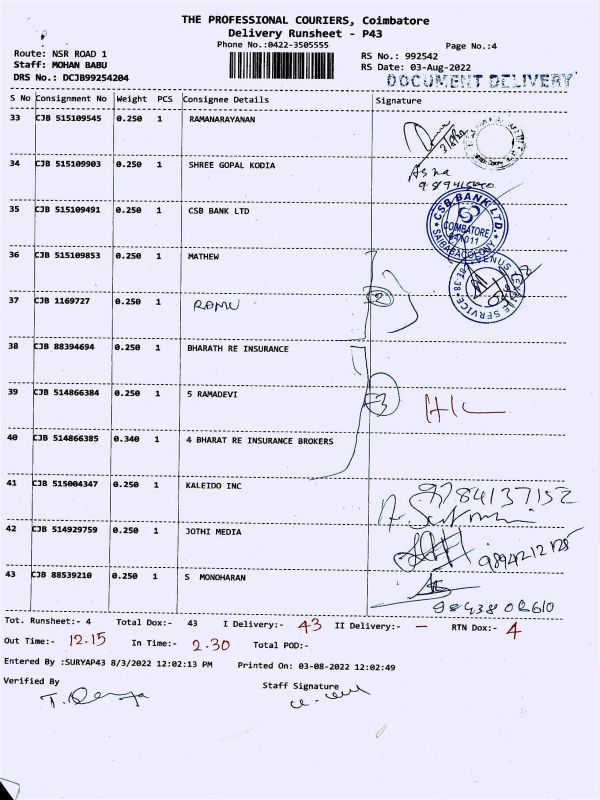 THE PROFESSIONAL COURIERS, Coimbatore
Delivery Runsheet - P43
Phone No.:0422-3505555
Page No.:4
Route: NSR ROAD 1
RS No.: 992542
Staff: MOHAN BABU
RS Date: 03-Aug-2022
DRS No.: DCJB99254204
DOCUMENT DELIVERY
S No Consignment No Weight PCS Consignee Details Signature
33 CJB 515109545 0.250 1 RAMANARAYANAN
34 CJB 515109903 0.250 1 SHREE GOPAL KODIA
35 CJB 515109491 0.250 1 CSB BANK LTD
CSB BANK LTD.
COIMBATORE
641011
SAIBABACOLONY
36 CJB 515109853 0.250 1 MATHEW
VENUS TEXTILE SERVICE
37 CJB 1169727 0.250 1 RAMU
2
38 CJB 88394694 0.250 1 BHARATH RE INSURANCE
39 CJB 514866384 0.250 1 5 RAMADEVI
3
40 CJB 514866385 0.340 1 4 BHARAT RE INSURANCE BROKERS
41 CJB 515004347 0.250 1 KALEIDO INC
9784137152
42 CJB 514929759 0.250 1 JOTHI MEDIA
43 CJB 88539210 0.250 1 S MONOHARAN
Tot. Runsheet:- 4 Total Dox:- 43 I Delivery:- 43 II Delivery:- - RTN Dox:- 4
Out Time:- 12.15 In Time:- 2.30 Total POD:-
Entered By :SURYAP43 8/3/2022 12:02:13 PM Printed On: 03-08-2022 12:02:49
Verified By
Staff Signature